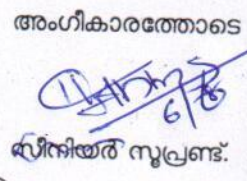 അംഗീകാരത്തോടെ
സീനിയർ സൂപ്രണ്ട്.